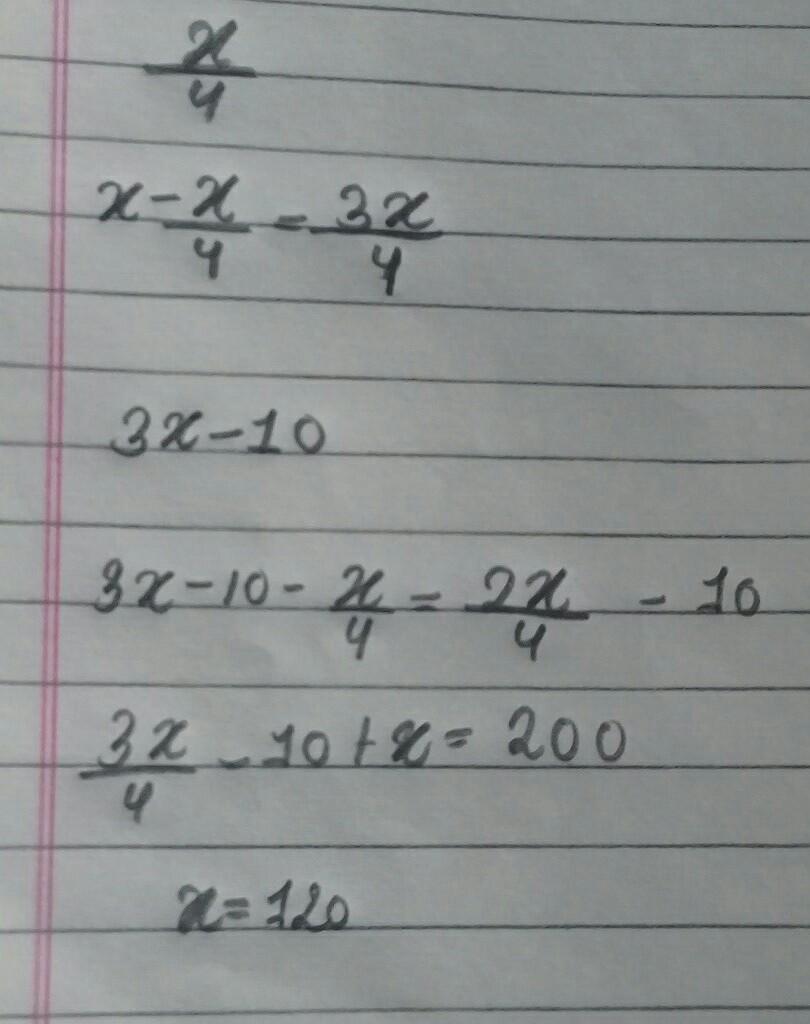 x/4
x - x/4 = 3x/4
3x - 10
3x - 10 - x/4 = 2x/4 - 10
3x/4 - 10 + x = 200
x = 120